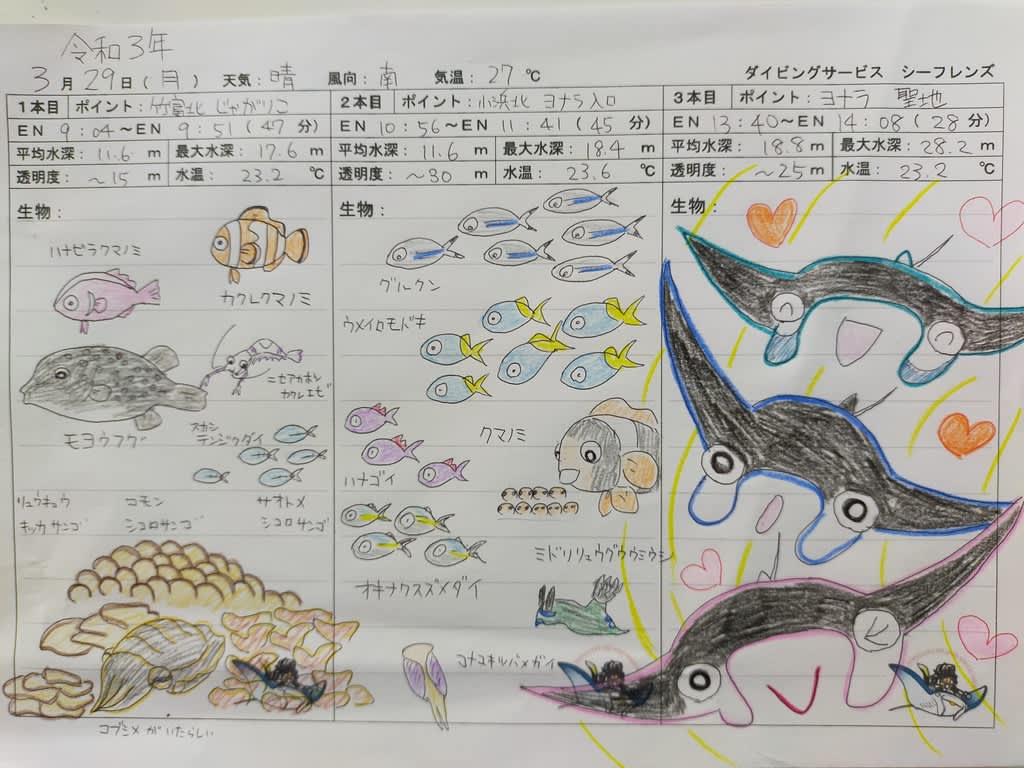 令和3年
3月29日(月) 天気:晴 風向:南 気温:27℃ ダイビングサービス シーフレンズ
1本目 ポイント:竹富北 じゃがりこ
EN 9:04~EN 9:51(47分)
平均水深:11.6m 最大水深:17.6m
透明度:~15m 水温:23.2℃
生物:
ハナビラクマノミ
カクレクマノミ
ニセアカホシ
カクレエビ
モヨウフグ
スカシ
テンジクダイ
リュウキュウ
キッカサンゴ
コモン
シコロサンゴ
サオトメ
シコロサンゴ
コブシメがいたらしい
2本目 ポイント:小浜北 ヨナラ入口
EN 10:56~EN 11:41(45分)
平均水深:11.6m 最大水深:18.4m
透明度:~30m 水温:23.6℃
生物:
グルクン
ウメイロモドキ
クマノミ
ハナゴイ
ミドリリュウグウウミウシ
オキナワスズメダイ
コナユキツバメガイ
3本目 ポイント:ヨナラ 聖地
EN 13:40~EN 14:08(28分)
平均水深:18.8m 最大水深:28.2m
透明度:~25m 水温:23.2℃
生物: